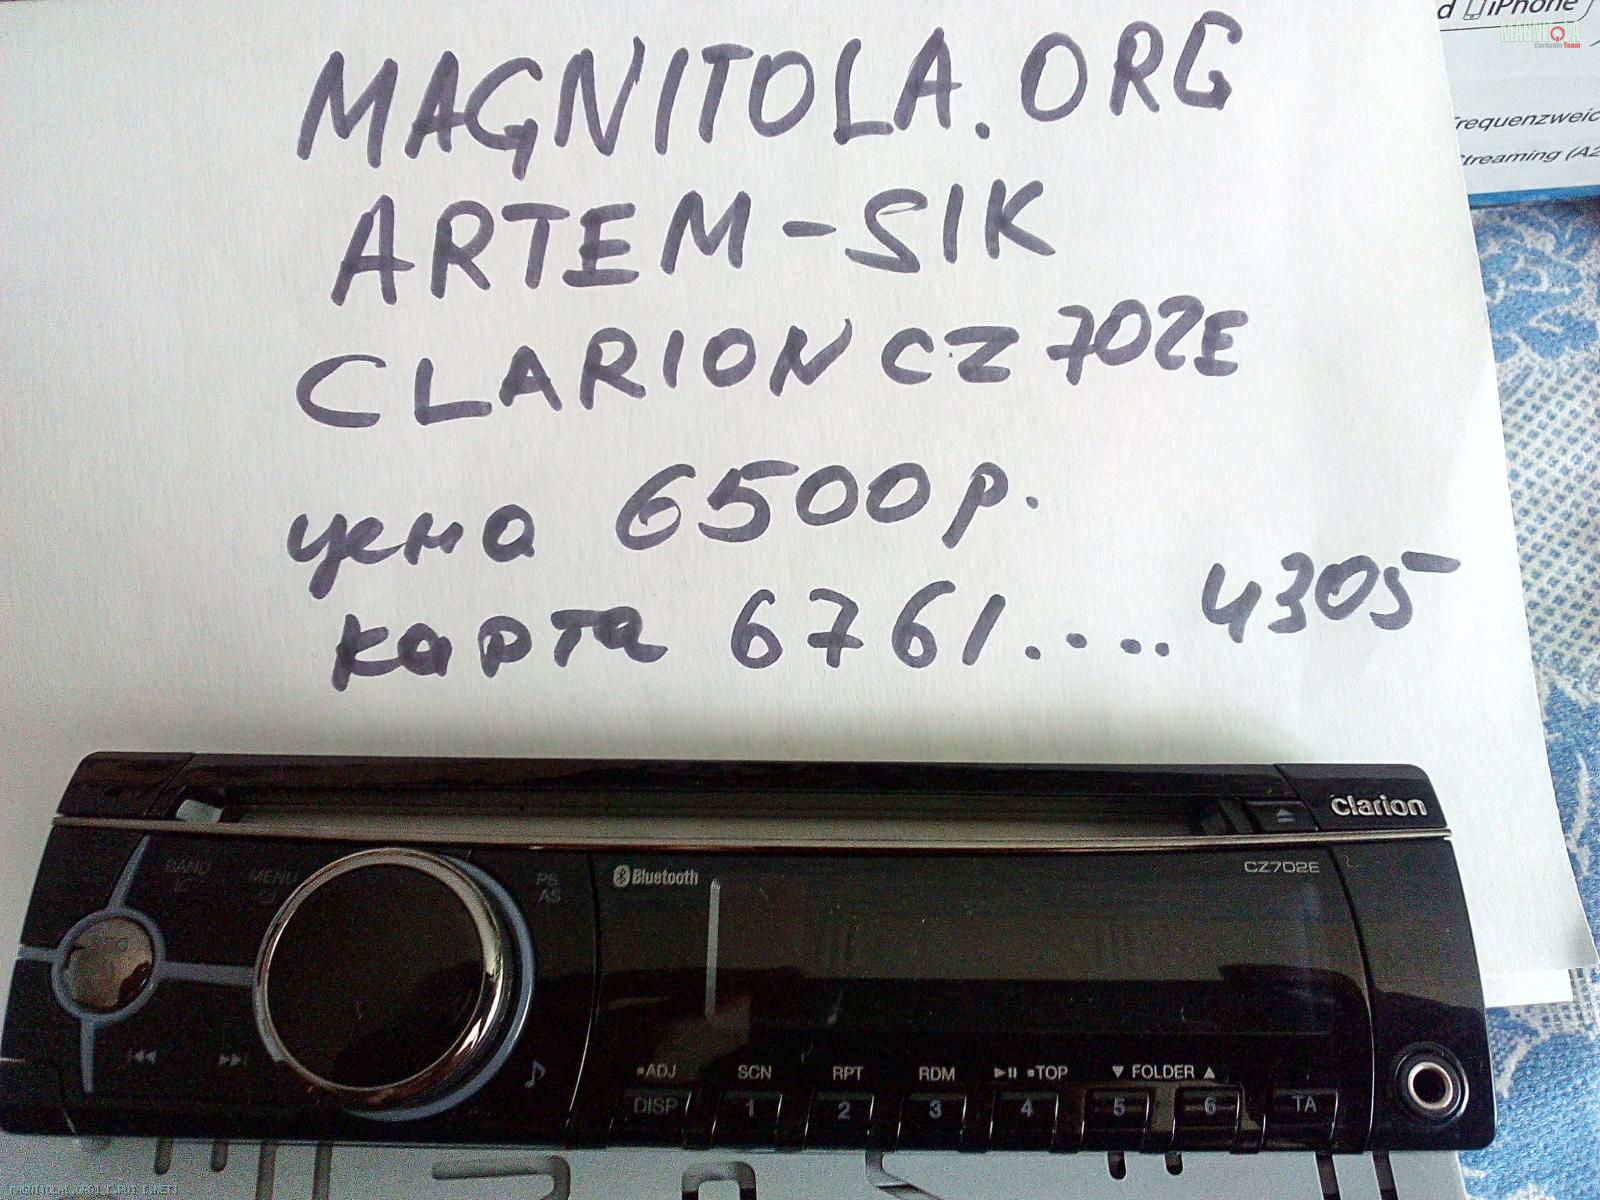 d iPhone
MAGNITOLA
CarAudio Team
Frequenzweic
Streaming (A2
MAGNITOLA.ORG
ARTEM-SIK
CLARION CZ 702E
цена 6500р.
карта 6761.... 4305
Clarion
CZ702E
BAND
MENU
PS
AS
Bluetooth
ADJ SCN RPT RDM TOP FOLDER
DISP 1 2 3 4 5 6 TA